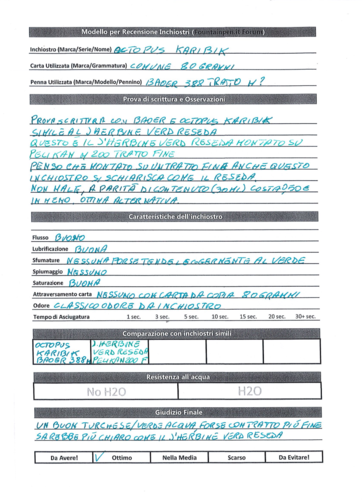 Modello per Recensione Inchiostri (Fountainpen.it Forum)
Inchiostro (Marca/Serie/Nome) OCTOPUS KARIBIK
Carta Utilizzata (Marca/Grammatura) COMUNE 80 GRAMMI
Penna Utilizzata (Marca/Modello/Pennino) BAOER 388 TRATTO M?
Prova di scrittura e Osservazioni
PROVA SCRITTURA CON BAOER E OCTOPUS KARIBIK
SIMILE AL J'HERBINE VERD RESEDA
QUESTO E IL J'HERBINE VERD RESEDA MONTATO SU
PELIKAN M 200 TRATTO FINE
PENSO CHE MONTATO SU UN TRATTO FINE ANCHE QUESTO
INCHIOSTRO SI SCHIARISCA COME IL RESEDA.
NON MALE, A PARITÀ DI CONTENUTO (30ml) COSTA 0,50€
IN MENO. OTTIMA ALTERNATIVA.
Caratteristiche dell'inchiostro
Flusso BUONO
Lubrificazione BUONA
Sfumature NESSUNA FORSE TENDE LEGGERMENTE AL VERDE
Spiumaggio NESSUNO
Saturazione BUONA
Attraversamento carta NESSUNO CON CARTA DA COPIA 80 GRAMMI
Odore CLASSICO ODORE DA INCHIOSTRO
Tempo di Asciugatura 1 sec. 3 sec. 5 sec. 10 sec. 15 sec. 20 sec. 30+ sec.
Comparazione con inchiostri simili
OCTOPUS J'HERBINE
KARIBIK VERD RESEDA
BAOER 388 M PELIKAN 200 F
Resistenza all'acqua
No H2O H2O
Giudizio Finale
UN BUON TURCHESE/VERDE ACQUA FORSE CON TRATTO PIÙ FINE
SAREBBE PIÙ CHIARO COME IL J'HERBINE VERD RESEDA
Da Avere! √ Ottimo Nella Media Scarso Da Evitare!